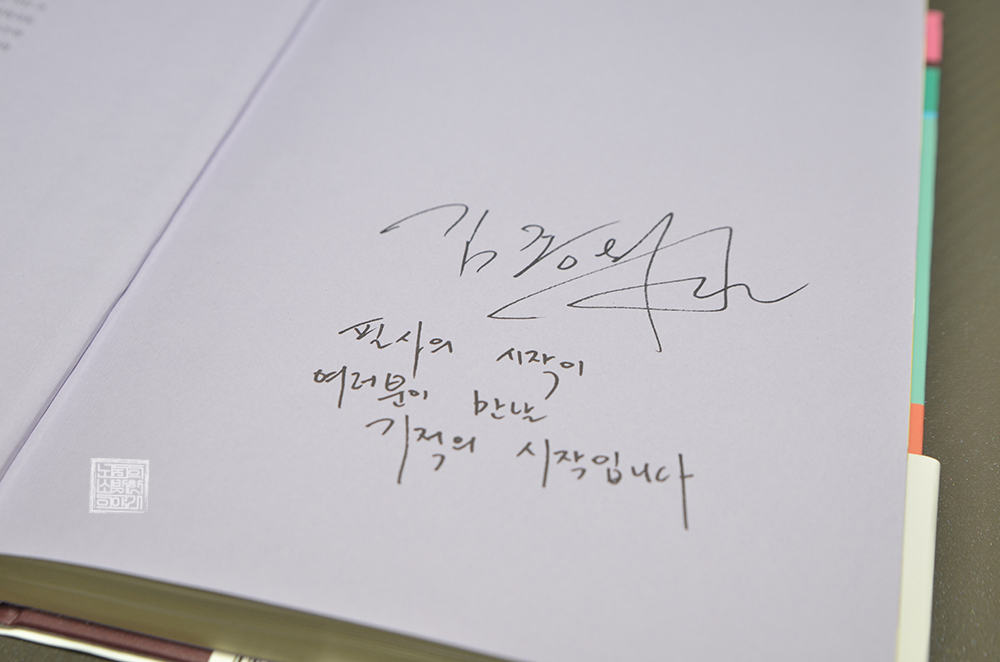 김종원
필사의 시작이
여러분이 만날
기적의 시작입니다